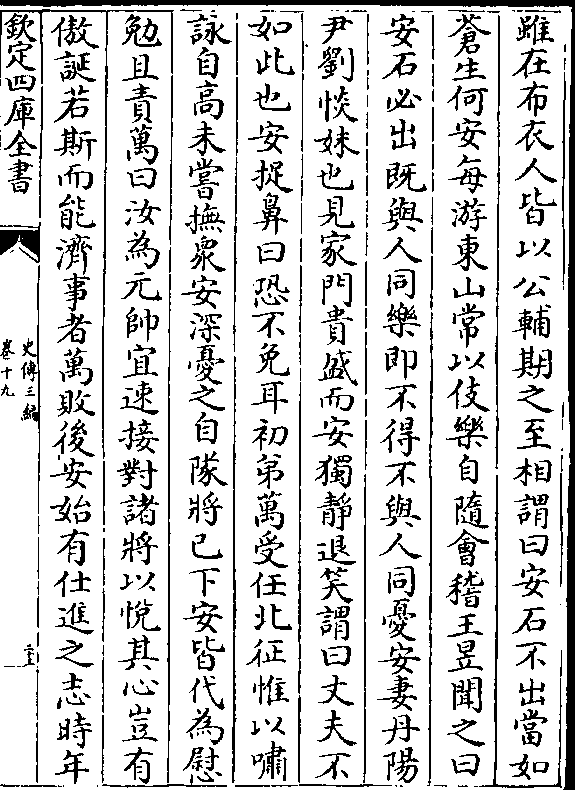 雖在布衣人皆以公輔期之至相謂曰安石不出當如
蒼生何安每游東山常以伎樂自隨會稽王昱聞之曰
安石必出既與人同樂即不得不與人同憂安妻丹陽
尹劉惔妹也見家門貴盛而安獨靜退笑謂曰丈夫不
如此也安捉鼻曰恐不免耳初弟萬受任北征惟以嘯
詠自高未嘗撫衆安深憂之自隊將已下安皆代為慰
勉且責萬曰汝為元帥宜速接對諸將以悅其心豈有
傲誕若斯而能濟事者萬敗後安始有仕進之志時年
欽定四庫全書
史傳三編
卷十九